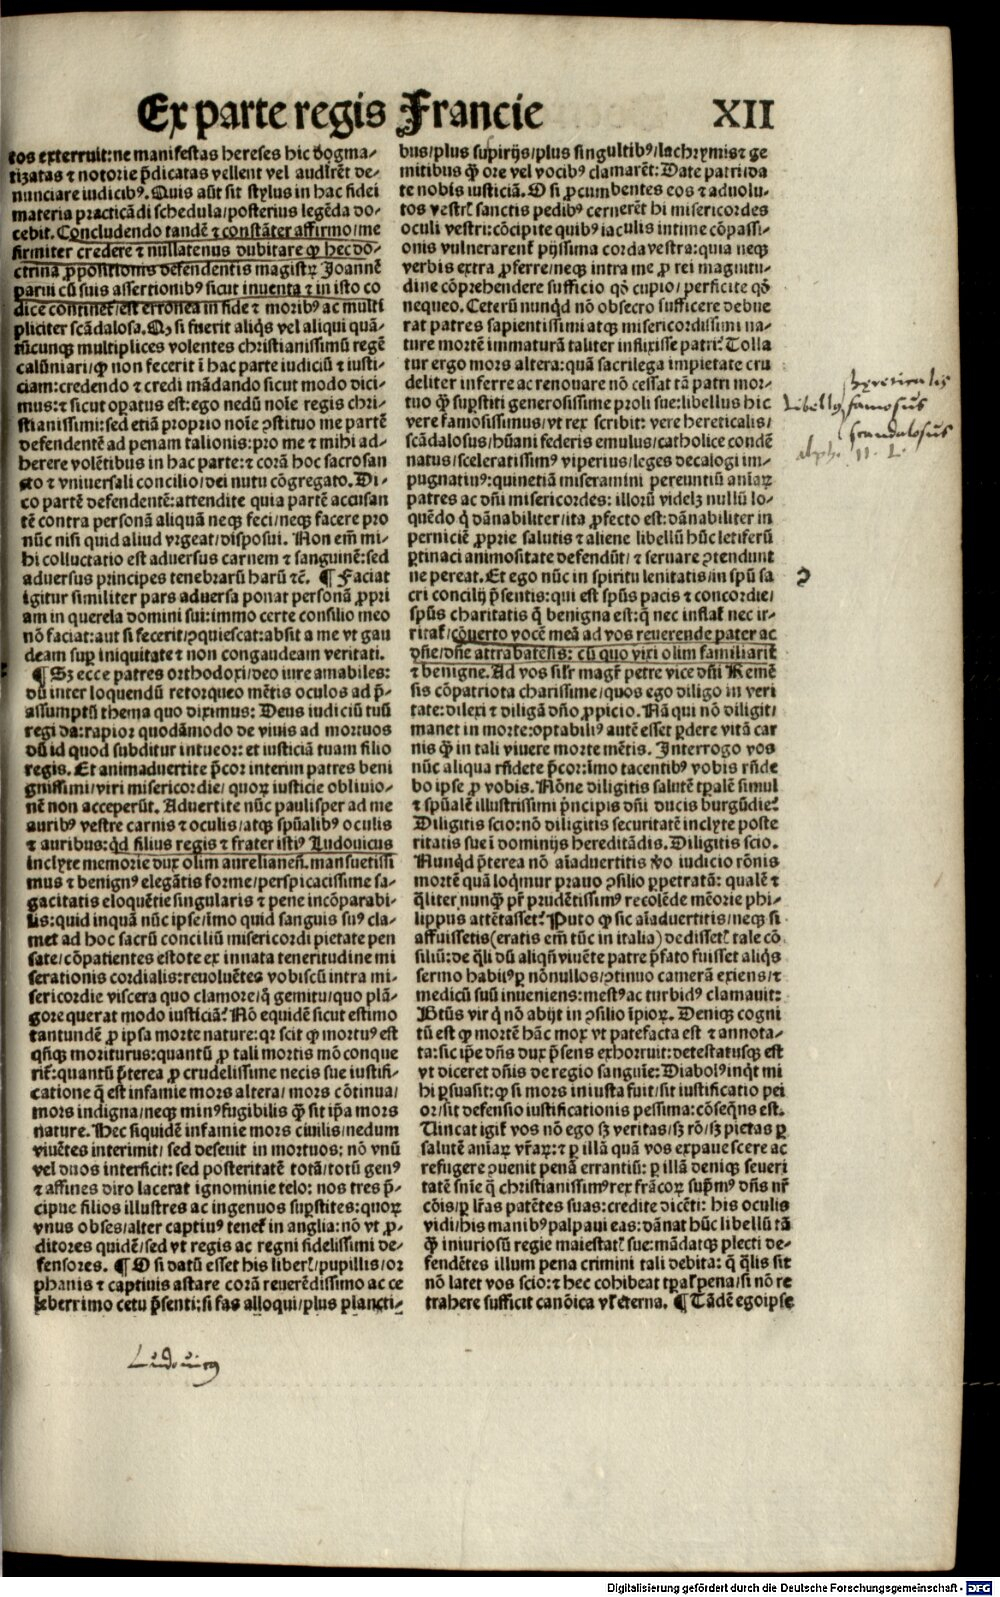 Ex parte regis Francie XII
tos exterruit: ne manifestas hereses hic dogma-
tizatas ⁊ notorie p̄dicatas vellent vel audirēt de-
nunciare iudicibꝰ. Quis aūt sit stylus in hac fidei
materia practicādi schedula/posterius legēda do-
cebit. Concludendo tandē ⁊ constāter affirmo/me
firmiter credere ⁊ nullatenus dubitare ꝙ hec do-
ctrina ꝓpositionis defendentis magistrꝝ Joannē
parui cū suis assertionibꝰ sicut inuenta ⁊ in isto co
dice continet̄/est erronea in fide ⁊ moribꝰ ac multi
pliciter scādalosa. Qꝫ si fuerit aliq̇s vel aliqui quā-
tūcunqꝫ multiplices volentes christianissimū regē
calūniari/ꝙ non fecerit ī hac parte iudiciū ⁊ iusti-
ciam: credendo ⁊ credi mādando sicut modo dici-
mus: ⁊ sicut oꝑatus est: ego nedū noīe regis chri-
stianissimi: sed etiā proprio noīe ꝯstituo me partē
defendentē ad penam talionis: pro me ⁊ mihi ad-
herere volētibus in hac parte: ⁊ corā hoc sacrosan
cto ⁊ vniuersali concilio/dei nutu cōgregato. Di-
co partē defendentē: attendite quia partē accusan
tē contra personā aliquā neqꝫ feci/neqꝫ facere pro
nūc nisi quid aliud vrgeat/disposui. Non em̄ mi-
hi colluctatio est aduersus carnem ⁊ sanguinē: sed
aduersus principes tenebrarū harū ⁊c̄. ¶ Faciat
igitur similiter pars aduersa ponat personā ꝓpri
am in querela domini sui: immo certe consilio meo
nō faciat: aut si fecerit/ꝯquiescat: absit a me vt gau
deam suꝑ iniquitate ⁊ non congaudeam veritati.
¶ Sꝫ ecce patres orthodoxi/deo iure amabiles:
dū inter loquendū retorqueo mētis oculos ad p̄-
assumptū thema quo diximus: Deus iudiciū tuū
regi da: rapior quodāmodo de viuis ad mortuos
dū id quod subditur intueor: et iusticiā tuam filio
regis. Et animaduertite p̄cor interim patres beni
gnissimi/viri misericordie/quoꝝ iusticie obliuio-
nē non acceperūt. Aduertite nūc paulisper ad me
auribꝰ vestre carnis ⁊ oculis/atqꝫ spūalibꝰ oculis
⁊ auribus: qd̄ filius regis ⁊ frater istiꝰ Ludouicus
inclyte memorie dux olim aurelianeñ. mansuetissi
mus ⁊ benignꝰ elegātis forme/perspicacissime sa-
gacitatis eloquētie singularis ⁊ pene incōparabi-
lis: quid inquā nūc ipse/imo quid sanguis suꝰ cla-
met ad hoc sacrū conciliū misericordi pietate pen
sate/cōpatientes estote ex innata teneritudine mi
serationis cordialis: reuoluētes vobiscū intra mi-
sericordie viscera quo clamore/q̄ gemitu/quo plā-
gore querat modo iusticiā? Nō equidē sicut estimo
tantundē ꝓ ipsa morte nature: qr scit ꝙ mortuꝰ est
qn̄qꝫ moriturus: quantū ꝓ tali mortis mō conque
rit̄: quantū p̄terea ꝓ crudelissime necis sue iustifi-
catione q̄ est infamie mors altera/mors cōtinua/
mors indigna/neqꝫ minꝰ fugibilis ꝙ̄ sit ip̄a mors
nature. Hec siquidē infamie mors ciuilis/nedum
viuētes interimit/sed deseuit in mortuos: nō vnū
vel duos interficit: sed posteritatē totā/totū genꝰ
⁊ affines diro lacerat ignominie telo: nos tres p̄-
cipue filios illustres ac ingenuos suꝑstites: quoꝝ
vnus obses/alter captiuꝰ tenet̄ in anglia: nō vt ꝓ-
ditores quidē/sed vt regis ac regni fidelissimi de-
fensores. ¶ O si datū esset his liberꝭ/pupillis/or
phanis ⁊ captiuis astare corā reuerēdissimo ac ce
leberrimo cetu p̄senti: si fas alloqui/plus plancti-
Ludouicꝰ
bus/plus suspirijs/plus singultibꝰ/lachrymis ⁊ ge
mitibus ꝙ̄ ore vel vocibꝰ clamarēt: Date patri/da
te nobis iusticiā. O si ꝓcumbentes eos ⁊ aduolu-
tos vestrꝭ sanctis pedibꝰ cernerēt hi misericordes
oculi vestri: cōcipite quibꝰ iaculis intime cōpassi-
onis vulnerarent̄ pijssima corda vestra: quia neqꝫ
verbis extra ꝓferre/neqꝫ intra me ꝓ rei magnitu-
dine cōprehendere sufficio qō cupio/perficite qō
nequeo. Ceterū nunqd̄ nō obsecro sufficere debue
rat patres sapientissimi atqꝫ misericordissimi na-
ture mortē immaturā taliter inflixisse patri? Tolla
tur ergo mors altera: quā sacrilega impietate cru
deliter inferre ac renouare nō cessat tā patri mor-
tuo ꝙ̄ suꝑstiti generosissime proli sue: libellus hic
vere famosissimus/vt rex scribit: vere hereticalis/
scādalosus/hūani federis emulus/catholice condē
natus/sceleratissimꝰ viperius/leges decalogi im-
pugnatiuꝰ: quinetiā miseramini pereuntiū aniaꝝ
patres ac dn̄i misericordes: illorū videlꝫ nullū lo-
quēdo q̇ dānabiliter/ita ꝓfecto est: dānabiliter in
perniciē ꝓprie salutis ⁊ aliene libellū hūc letiferū
ꝑtinaci animositate defendūt/⁊ seruare ꝯtendunt
ne pereat. Et ego nūc in spiritu lenitatis/in spū sa
cri concilij p̄sentis: qui est spūs pacis ⁊ concordie/
spūs charitatis q̄ benigna est: q̄ nec inflat̄ nec ir-
ritat̄/cōuerto vocē meā ad vos reuerende pater ac
dn̄e/dn̄e attrabateñsis: cū quo vixi olim familiarit̄
⁊ benigne. Ad vos silr̄ magr̄ petre vice dn̄i Remē
sis cōpatriota charissime/quos ego diligo in veri
tate: dilexi ⁊ diligā dn̄o ꝓpicio. Nā qui nō diligit/
manet in morte: optabiliꝰ autē esset ꝑdere vitā car
nis ꝙ̄ in tali viuere morte mētis. Interrogo vos
nūc aliqua rn̄dete p̄cor: imo tacentibꝰ vobis rn̄de
bo ipse ꝓ vobis. Nōne diligitis salutē tꝑalē simul
⁊ spūalē illustrissimi p̄ncipis dn̄i ducis burgūdie?
Diligitis scio: nō diligitis securitatē inclyte poste
ritatis sue ī dominijs hereditādis. Diligitis scio.
Nunqd̄ p̄terea nō aīaduertitis ꝟo iudicio rōnis
mortē quā loq̇mur prauo ꝯsilio ꝑpetratā: qualē ⁊
q̄liter nunqꝫ pr̄ prudētissimꝰ recolēde mēorie phi-
lippus attētasset? Puto ꝙ sic aīaduertitis/neqꝫ si
affuissetis (eratis em̄ tūc in italia) dedissetꝭ tale cō
siliū: de q̄li dū aliqn̄ viuēte patre p̄fato fuisset aliq̇s
sermo habitꝰ ꝑ nōnullos/ꝯtinuo camerā exiens/⁊
medicū suū inueniens: mestꝰ ac turbidꝰ clamauit:
Btūs vir q̇ nō abijt in ꝯsilio īpioꝝ. Deniqꝫ cogni
tū est ꝙ mortē hāc mox vt patefacta est ⁊ annota-
ta: sic ip̄e dn̄s dux p̄sens exhorruit: detestatusqꝫ est
vt diceret dn̄is de regio sanguīe: Diabolꝰ inq̇t mi
hi ꝑsuasit: ꝙ si mors iniusta fuit/sit iustificatio pei
or/sit defensio iustificationis pessima: cōseq̄ns est.
Uincat igit̄ vos nō ego sꝫ veritas/sꝫ rō/sꝫ pietas ꝑ
salutē aniaꝝ vr̄aꝝ: ⁊ ꝑ illā quā vos expauescere ac
refugere ꝯuenit penā errantiū: ꝑ illā deniqꝫ seueri
tatē sn̄ie q̄ christianissimꝰ rex frācoꝝ supm̄ꝰ dn̄s nr̄
cōis/ꝑ lr̄as patētes suas: credite dicēti: his oculis
vidi/his manibꝰ palpaui eas: dānat hūc libellū tā
ꝙ̄ iniuriosū regie maiestatꝭ sue: mādatqꝫ plecti de-
fendētes illum pena crimini tali debita: ꝙ q̄lis sit
nō latet vos scio: ⁊ hec cohibeat tꝑalꝭ pena/si nō re
trahere sufficit canōica vl̄ eterna. ¶ Tādē ego ipse
hereticalis
Libellꝰ famosus
scandalosus
Digitalisierung gefördert durch die Deutsche Forschungsgemeinschaft - DFG